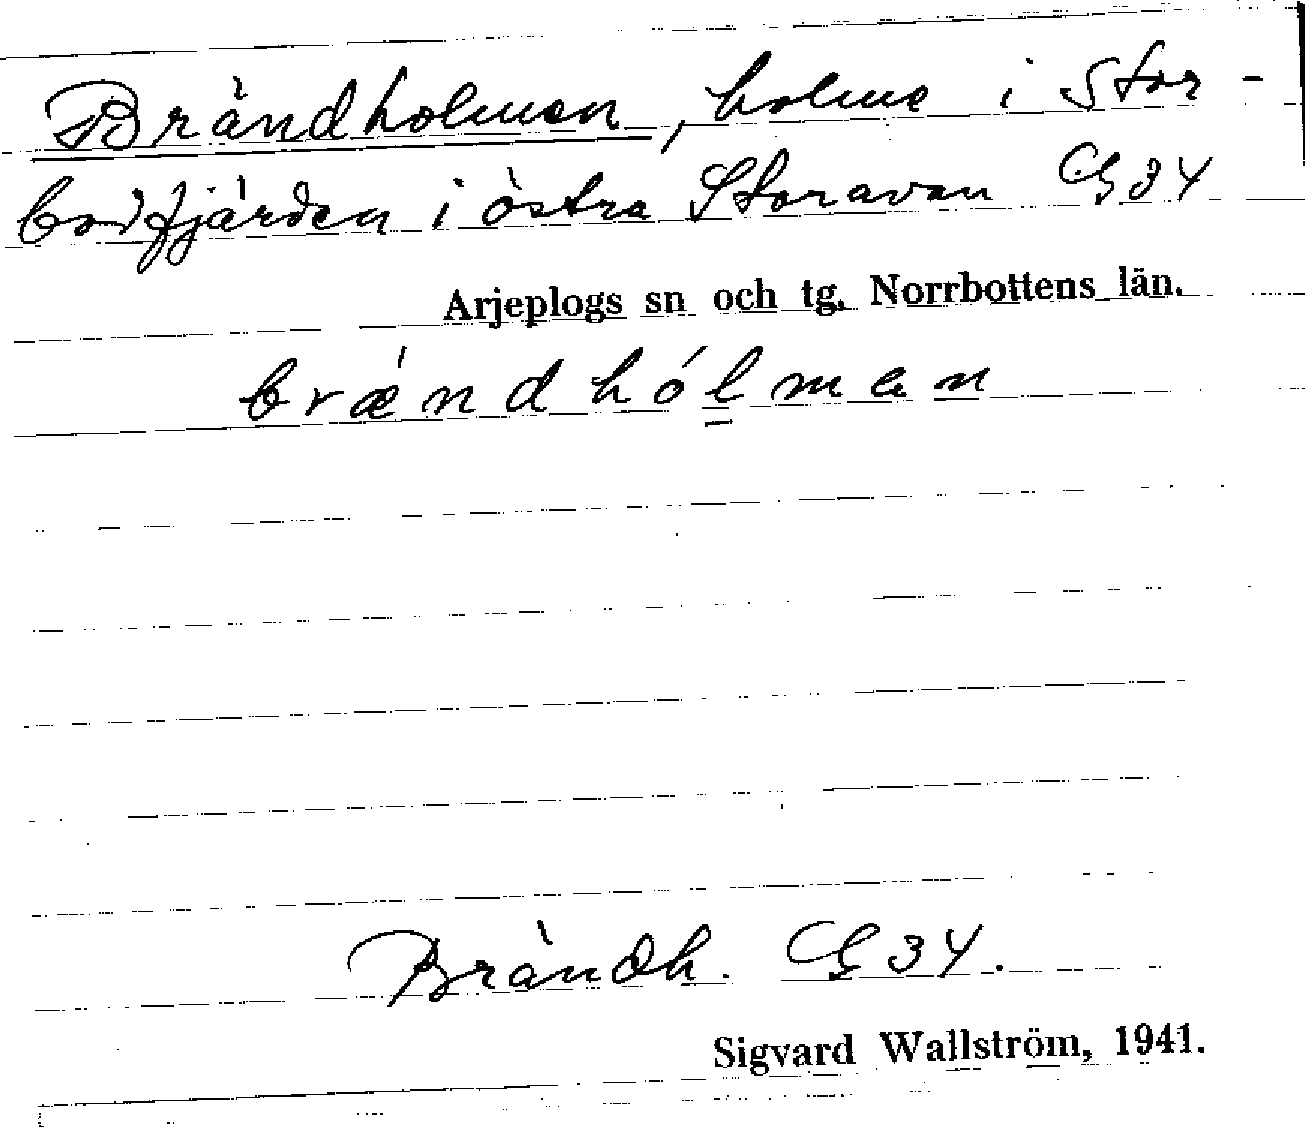 Brändholmen, holme i Stor-
bodfjärden i östra Storavan G34
Arjeplogs sn och tg, Norrbottens län.
brǽndhólman
Brändh. G34.
Sigvard Wallström, 1941.